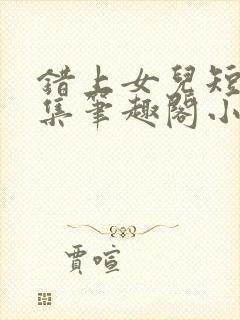 錯上女兒短
集筆趣閣小
賈喧